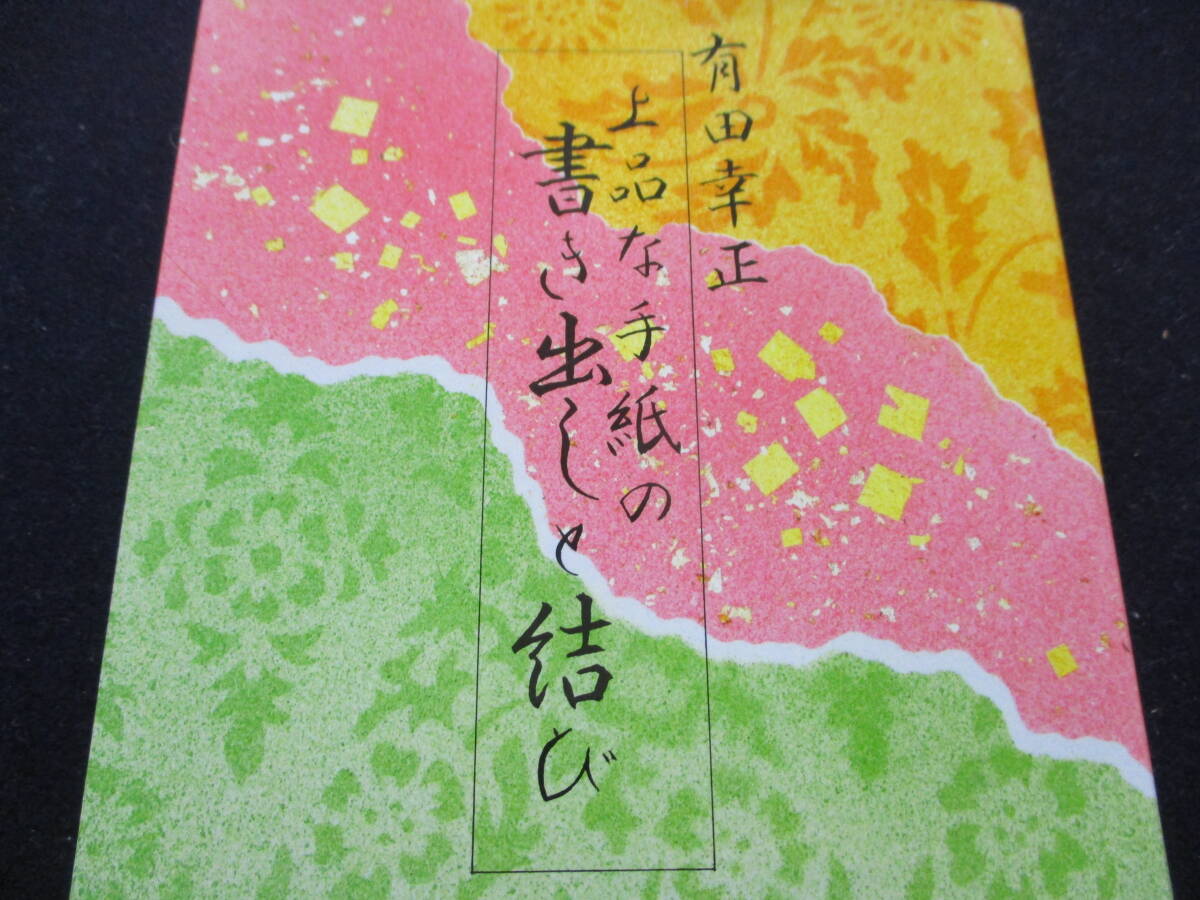 有田幸正
上品な手紙の
書き出しと結び